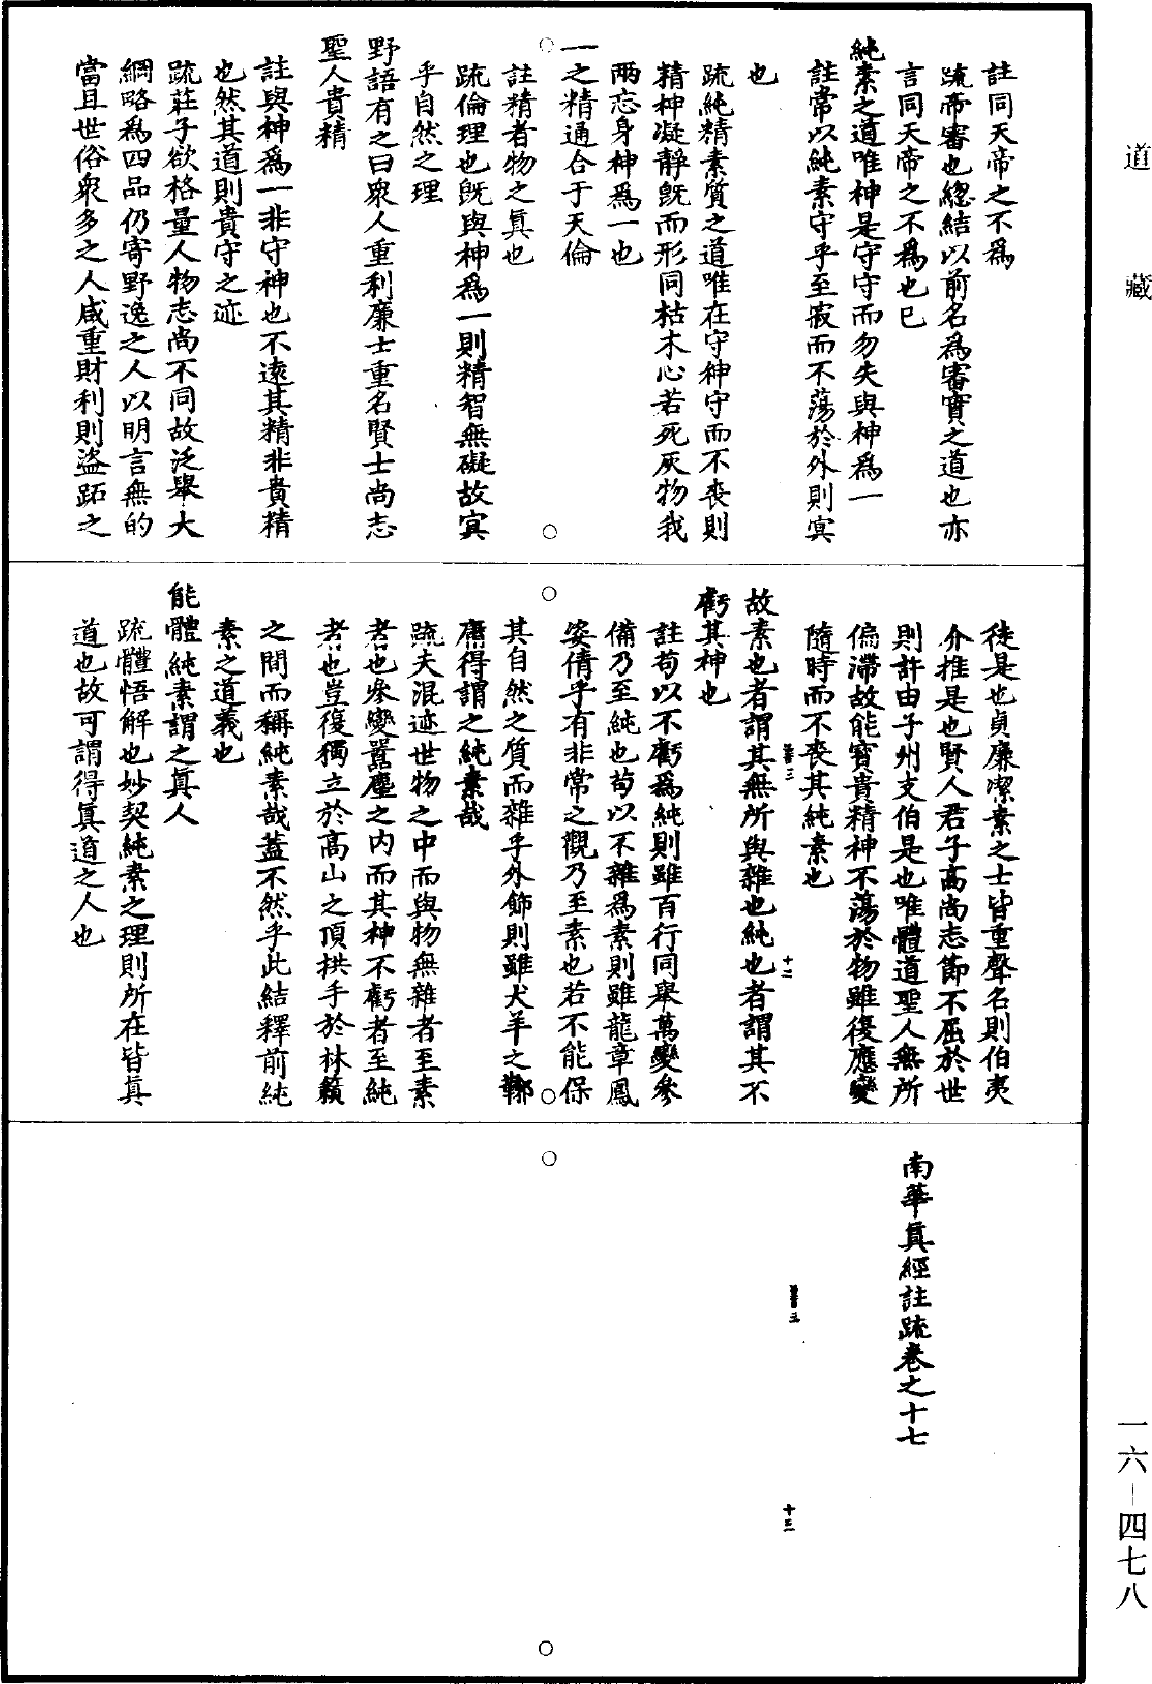 道藏
註同天帝之不爲
疏帝審也總結以前名爲審實之道也亦
言同天帝之不爲也已
純素之道唯神是守守而勿失與神爲一
註常以純素守乎至寂而不蕩於外則冥
也
疏純精素質之道唯在守神守而不喪則
精神凝靜既而形同枯木心若死灰物我
兩忘身神爲一也
一之精通合于天倫
註精者物之眞也
疏倫理也既與神爲一則精智無礙故冥
乎自然之理
野語有之曰衆人重利廉士重名賢士尚志
聖人貴精
註與神爲一非守神也不遠其精非貴精
也然其道則貴守之迹
疏莊子欲格量人物志尚不同故泛舉大
綱略爲四品仍寄野逸之人以明言無的
當且世俗衆多之人咸重財利則盜跖之
徒是也貞廉潔素之士皆重聲名則伯夷
介推是也賢人君子高尚志節不屈於世
則許由子州支伯是也唯體道聖人無所
偏滯故能寶貴精神不蕩於物雖復應變
隨時而不喪其純素也
故素也者謂其無所與雜也純也者謂其不
虧其神也
註苟以不虧爲純則雖百行同舉萬變參
備乃至純也苟以不雜爲素則雖龍章鳳
姿倩乎有非常之觀乃至素也若不能保
其自然之質而雜乎外飾則雖犬羊之鞹
庸得謂之純素哉
疏夫混迹世物之中而與物無雜者至素
者也參變囂塵之内而其神不虧者至純
者也豈復獨立於高山之頂拱手於林籟
之間而稱純素哉蓋不然乎此結釋前純
素之道義也
能體純素謂之眞人
疏體悟解也妙契純素之理則所在皆眞
道也故可謂得眞道之人也
十二
南華眞經註疏卷之十七
十三
一六—四七八